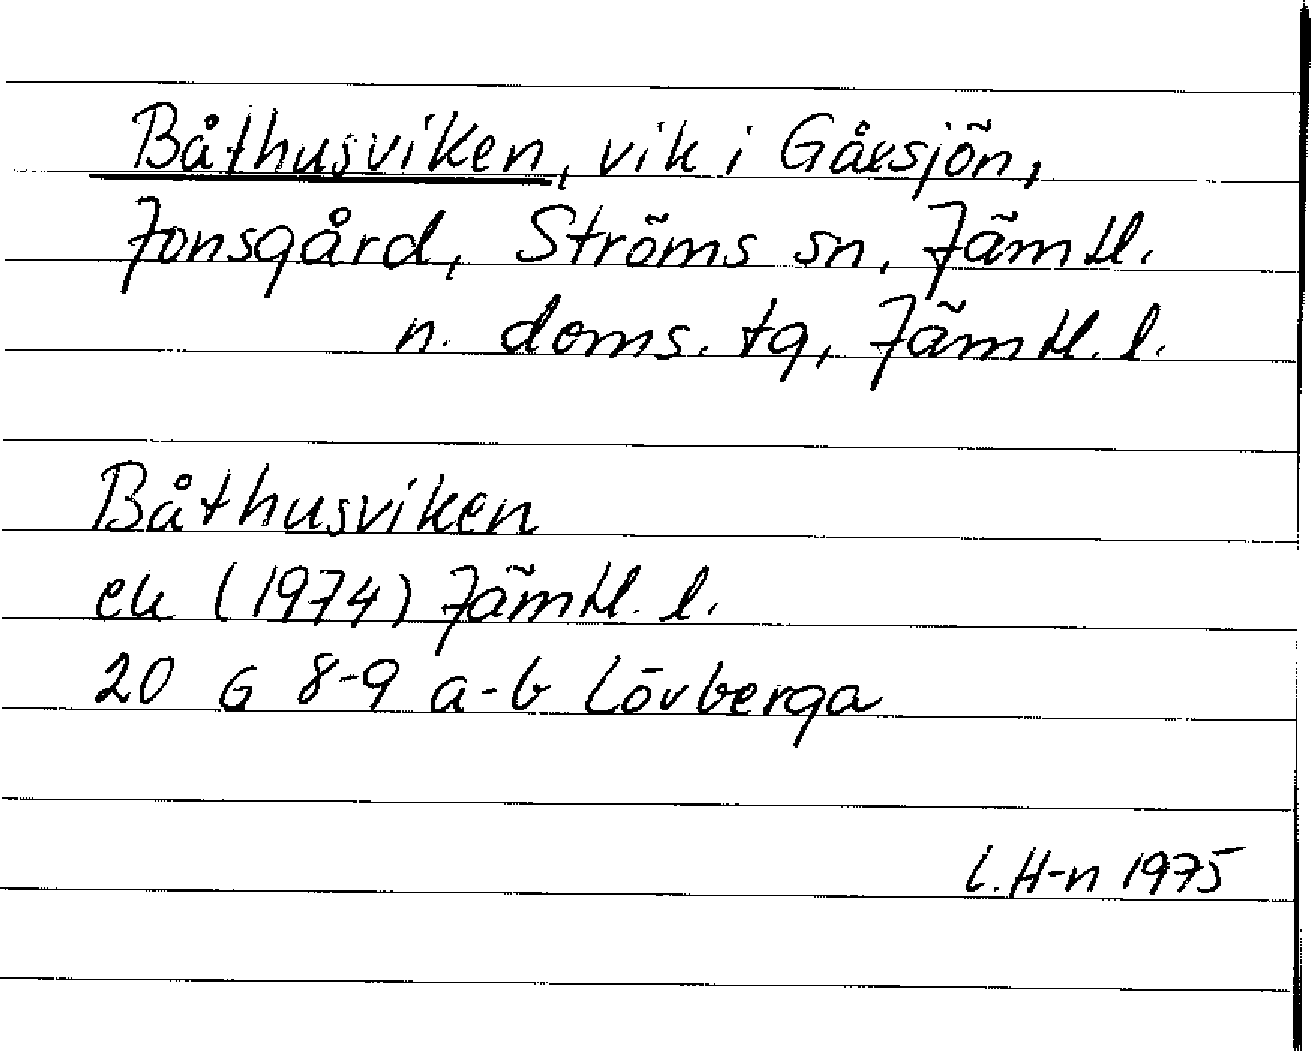 Båthusviken, vik i Gåxsjön,
Jonsgård, Ströms sn, Jämtl.
n. doms. tg, Jämtl. l.
Båthusviken
ek (1974) Jämtl. l.
20 G 8-9 a-b Lövberga
L. H-n 1975